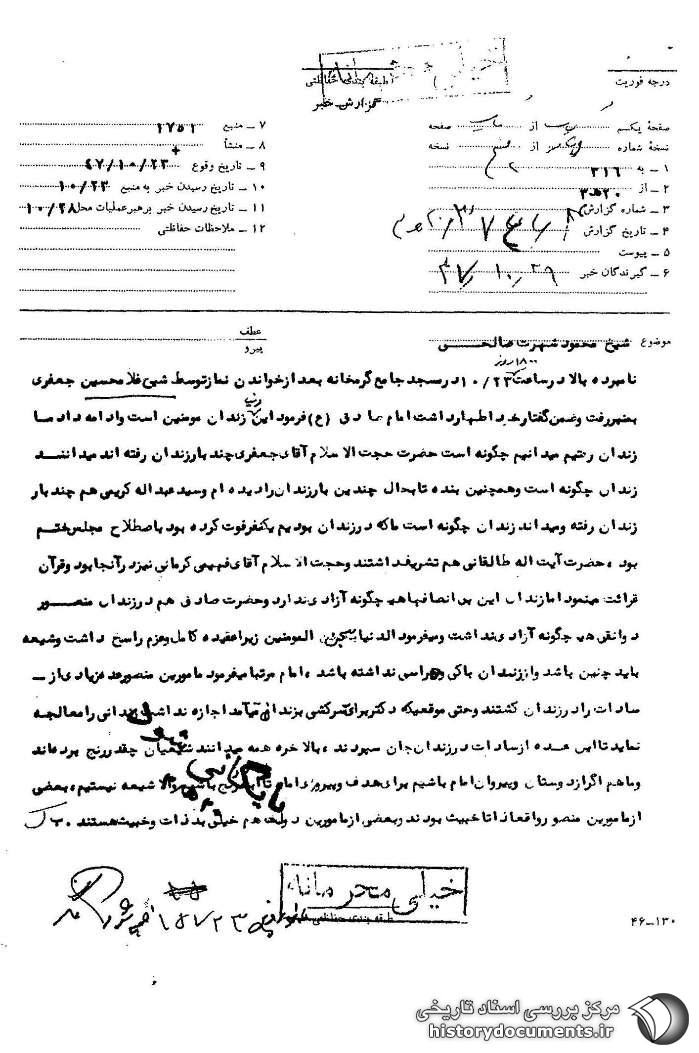 خیلی محرمانه
درجه فوریت
طبقه بندی حفاظتی
گزارش خبر
صفحه یکم از صفحه
نسخه شماره از نسخه
۱ – به ۳۱۶
۲ – از ۲۰ ه‍ ۳
۳ – شماره گزارش
۴ – تاریخ گزارش
۵ – پیوست
۶ – گیرندگان خبر
۷ – منبع ۱۷۵۱
۸ – منشأ +
۹ – تاریخ وقوع ۴۷/۱۰/۲۳
۱۰ – تاریخ رسیدن خبر به منبع ۱۰/۲۳
۱۱ – تاریخ رسیدن خبر برهبر عملیات محل ۱۰/۲۸
۱۲ – ملاحظات حفاظتی
عطف
پیرو
موضوع شیخ محمود شهرت صالحی
نامبرده بالا در ساعت ۱۸۰۰ روز ۱۰/۲۳ در مسجد جامع گرمخانه بعد از خواندن نماز توسط شیخ غلامحسین جعفری
بمنبر رفت و ضمن گفتار خود اظهار داشت امام صادق (ع) فرمود این دنیا زندان مومنین است و ادامه داد ما
زندان رفتیم میدانیم چگونه است حضرت حجت الاسلام آقای جعفری چند بار زندان رفته اند میدانند
زندان چگونه است و همچنین بنده تا بحال چندین بار زندان را دیده ام و سید عبداله کریمی هم چند بار
زندان رفته و میداند زندان چگونه است ما که در زندان بودیم یکنفر فوت کرده بود باصطلاح مجلس ختم
بود، حضرت آیت اله طالقانی هم تشریف داشتند و حجت الاسلام آقای فهیمی کرمانی نیز در آنجا بود و قرآن
قرائت مینمود اما زندان این بی انصافها هیچگونه آزادی ندارد و حضرت صادق هم در زندان منصور
دوانقی هیچگونه آزادی نداشت و میفرمود الدنیا سجن المومنین زیرا عقیده کامل و عزم راسخ داشت و شیعه
باید چنین باشد و از زندان باکی و هراسی نداشته باشد، امام مرتبا میفرمود مامورین منصور عده زیادی از –
سادات را در زندان کشتند و حتی موقعیکه دکتر برای سرکشی بزندان میآمد اجازه نداشت زندانی را معالجه
نماید تا این عده از سادات در زندان جان سپردند، بالاخره همه میدانند شیعیان چقدر رنج برده اند
و ما هم اگر از دوستان و پیروان امام باشیم برای هدف و پیروزی امام باشیم والا شیعه نیستیم، بعضی
از مامورین منصور واقعا ذاتا خبیث بودند و بعضی از مامورین دولت هم خیلی بد ذات و خبیث هستند
خیلی محرمانه
طبقه بندی حفاظتی
۴۶–۱۳۰
مرکز بررسی اسناد تاریخی
historydocuments.ir